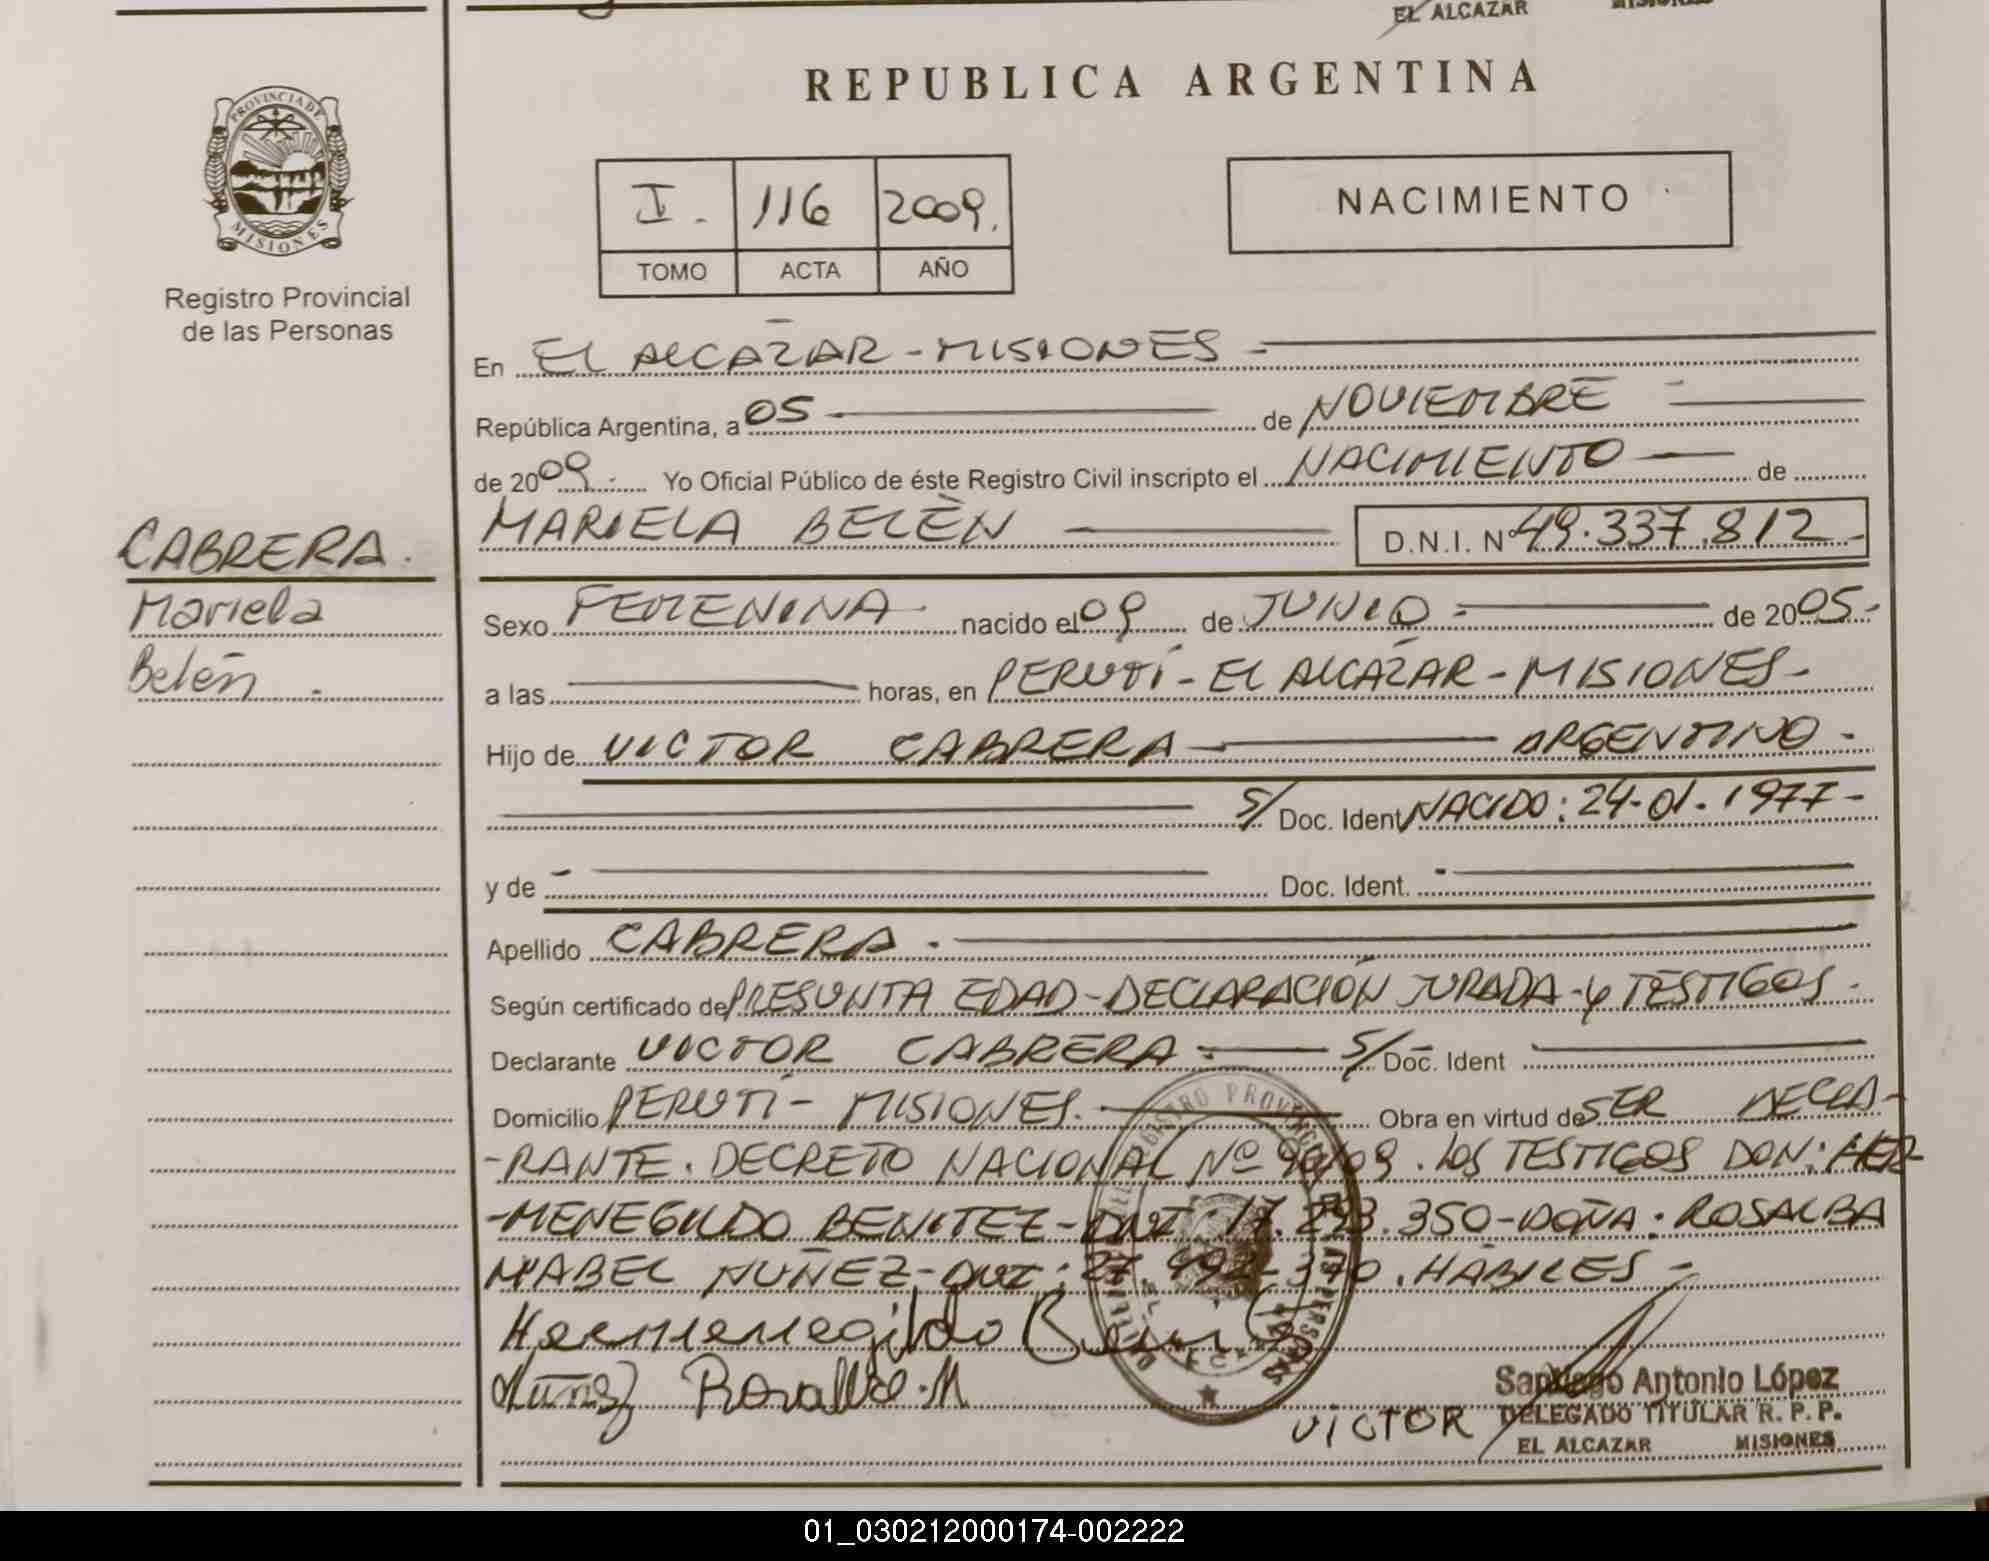 EL ALCAZAR
REPUBLICA ARGENTINA
PROVINCIA DE
MISIONES
Registro Provincial
de las Personas
I. 116 2009.
TOMO ACTA AÑO
NACIMIENTO
En EL ALCAZAR - MISIONES -
República Argentina, a 05 de NOVIEMBRE
de 2009 Yo Oficial Público de éste Registro Civil inscripto el NACIMIENTO de
MARIELA BELÉN D.N.I. Nº 49.337.812
CABRERA.
Mariela
Belén
Sexo FEMENINA nacido el 09 de JUNIO de 2005.-
a las horas, en PERUTÍ - EL ALCAZAR - MISIONES -
Hijo de VICTOR CABRERA ARGENTINO -
S/ Doc. Ident NACIDO: 24-01-1977-
y de Doc. Ident.
Apellido CABRERA.
Según certificado de PRESUNTA EDAD-DECLARACIÓN JURADA - y TESTIGOS.
Declarante VICTOR CABRERA S/ Doc. Ident
Domicilio PERUTÍ - MISIONES. Obra en virtud de SER DECLA-
-RANTE. DECRETO NACIONAL Nº 90/09. LOS TESTIGOS DON: HER
-MENEGILDO BENITEZ - DNI: 17. .350 - DOÑA: ROSALBA
MABEL NUÑEZ - DNI: 370. HÁBILES -
Hermenegildo
Nuñez Rosalba M
VICTOR
Santiago Antonio López
DELEGADO TITULAR R. P. P.
EL ALCAZAR MISIONES
01_030212000174-002222